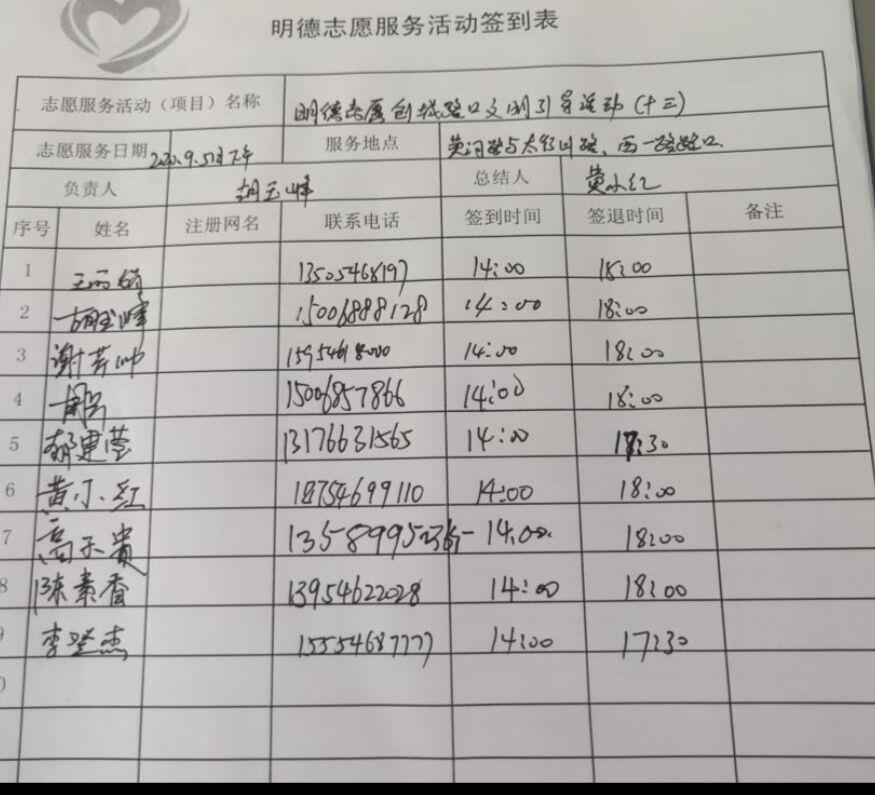 明德志愿服务活动签到表
志愿服务活动（项目）名称 明德志愿创城路口文明引导活动（十三）
志愿服务日期 2020.9.5日下午 服务地点 黄河路与太行山路、西一路路口
负责人 胡玉峰 总结人 黄小红
序号 姓名 注册网名 联系电话 签到时间 签退时间 备注
1 13505468197 14:00 18:00
2 胡玉峰 15006888128 14:00 18:00
3 谢芳帅 1595468000 14:00 18:00
4 15006857866 14:00 18:00
5 郝建莹 13176631565 14:00 17:30
6 黄小红 18754699110 14:00 18:00
7 高永贵 14:00 18:00
8 陈素香 13954622028 14:00 18:00
9 李登杰 15554687777 14:00 17:30
0